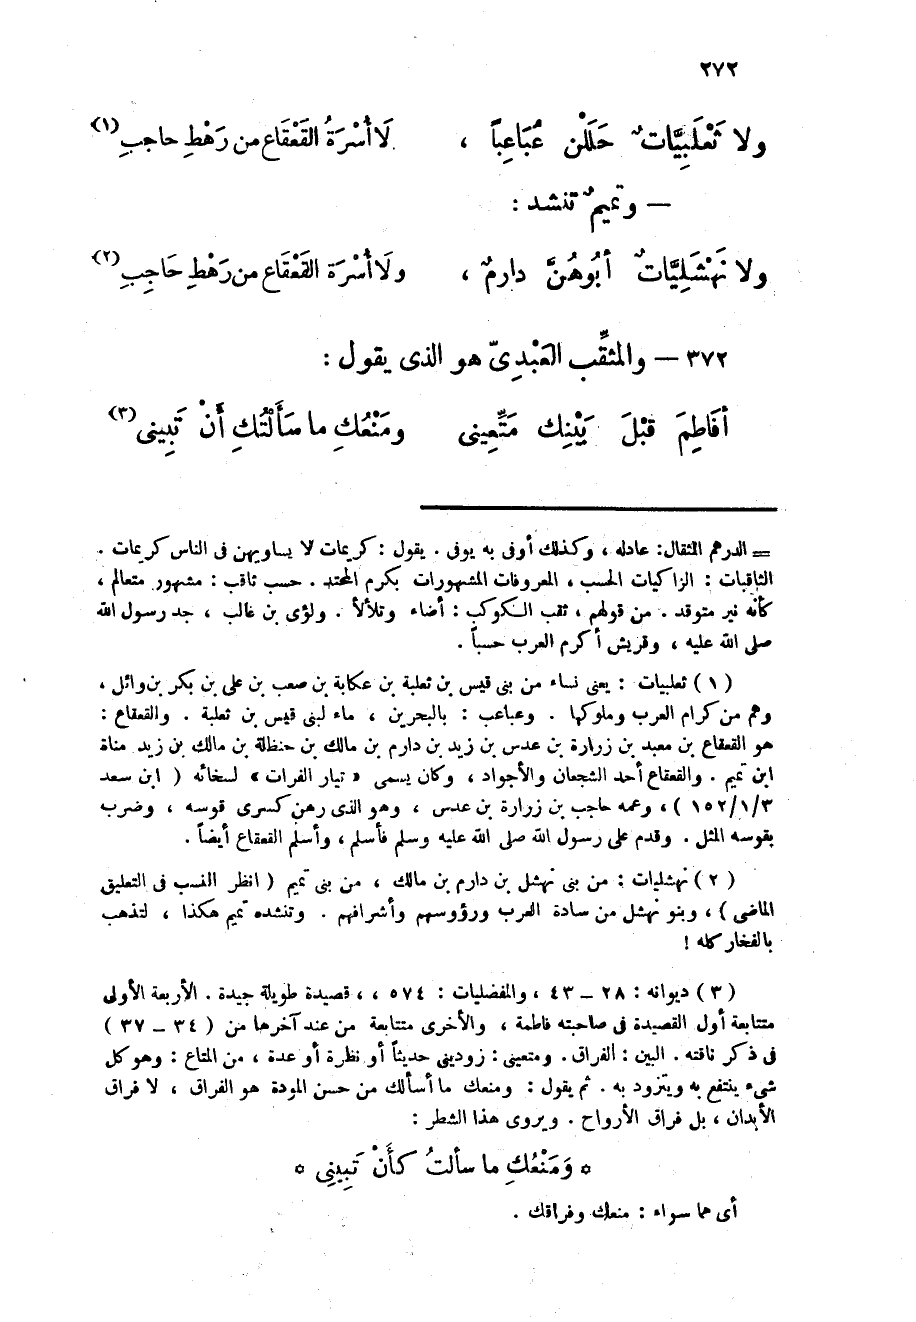 ٢٧٢
ولا ثَعْلَبِيَّاتٌ حَلَلْن عُبَاعِباً ، لَا أُسْرَةُ القَعْقَاع من رَهْطِ حاجبِ (١)
— وتميمٌ تنشد :
ولا نَهْشَلِيَّاتٌ أَبُوهُنَّ دارمٌ ، ولَا أُسْرَة القَعْقَاع من رَهْطِ حَاجِبِ (٢)
٣٧٢ — والمثقِّب العَبْدِىّ هو الذى يقول :
أفَاطِمَ قبْلَ بَيْنِك مَتِّعِينى ومَنْعُكِ ما سَأَلْتُكِ أَنْ تَبِينى (٣)
= الدرهم المثقال : عادله ، وكذلك أوفى به يوفى . يقول : كريمات لا يساويهن فى الناس كريمات .
الثاقبات : الزاكيات الحسب ، المعروفات المشهورات بكرم المحتد . حسب ثاقب : مشهور متعالم ،
كأنه نير متوقد . من قولهم ، ثقب الكوكب : أضاء وتلألأ . ولؤى بن غالب ، جد رسول الله
صلى الله عليه ، وقريش أكرم العرب حسباً .
( ١ ) ثعلبيات : يعنى نساء من بنى قيس بن ثعلبة بن عكابة بن صعب بن على بن بكر بن وائل ،
وهم من كرام العرب وملوكها . وعباعب : بالبحرين ، ماء لبنى قيس بن ثعلبة . والقعقاع :
هو القعقاع بن معبد بن زرارة بن عدس بن زيد بن دارم بن مالك بن حنظلة بن مالك بن زيد مناة
ابن تميم . والقعقاع أحد الشجعان والأجواد ، وكان يسمى « تيار الفرات » لسخائه ( ابن سعد
٣/١/١٥٢ ) ، وعمه حاجب بن زرارة بن عدس ، وهو الذى رهن كسرى قوسه ، وضرب
بقوسه المثل . وقدم على رسول الله صلى الله عليه وسلم فأسلم ، وأسلم القعقاع أيضاً .
( ٢ ) نهشليات : من بنى نهشل بن دارم بن مالك ، من بنى تميم ( انظر النسب فى التعليق
الماضى ) ، وبنو نهشل من سادة العرب ورؤوسهم وأشرافهم . وتنشده تميم هكذا ، لتذهب
بالفخار كله !
( ٣ ) ديوانه : ٢٨ – ٤٣ ، والمفضليات : ٥٧٤ ، ، قصيدة طويلة جيدة . الأربعة الأولى
متتابعة أول القصيدة فى صاحبته فاطمة ، والأخرى متتابعة من عند آخرها من ( ٣٤ – ٣٧ )
فى ذكر ناقته . البين : الفراق . ومتعينى : زودينى حديثاً أو نظرة أو عدة ، من المتاع : وهو كل
شىء ينتفع به ويتزود به . ثم يقول : ومنعك ما أسألك من حسن المودة هو الفراق ، لا فراق
الأبدان ، بل فراق الأرواح . ويروى هذا الشطر :
* وَمَنْعُكِ ما سألتُ كَأَنْ تَبِينِى *
أى هما سواء : منعك وفراقك .